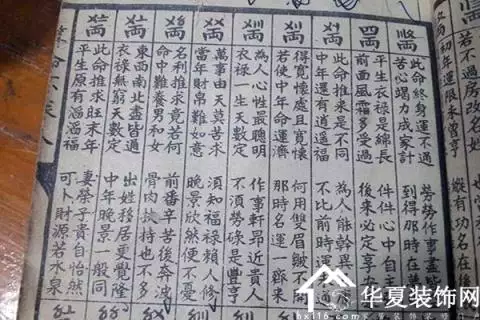 若不過房改名姓
初年運限未曾亨
縱有功名在
此命終身運不通
勞勞作事盡
苦心竭力成家計
到得那時在
四兩
平生衣祿是綿長
件件心中自
前面風霜多受過
後來必定享
此命推來是不同
為人能幹異
中年還有逍遙福
不比前時運
得寬懷處且寬懷
何用雙眉皺不開
若使中年命運濟
那時名運一齊來
為人心性最聰明
作事軒昂近貴人
衣祿一生天數定
不須勞碌是豐亨
萬事由天莫苦求
須知福祿賴人修
當年財帛難如意
晚景欣然便不憂
名利推求竟若何
前番辛苦後奔波
命中難養男和女
骨肉扶持也不多
東西南北盡皆通
出姓移居更覺隆
衣祿無窮天數定
中年晚景一般同
此命推求旺末年
妻榮子貴自怡然
平生原有滔滔福
可卜財源若水泉
华夏装饰网
hx116.com